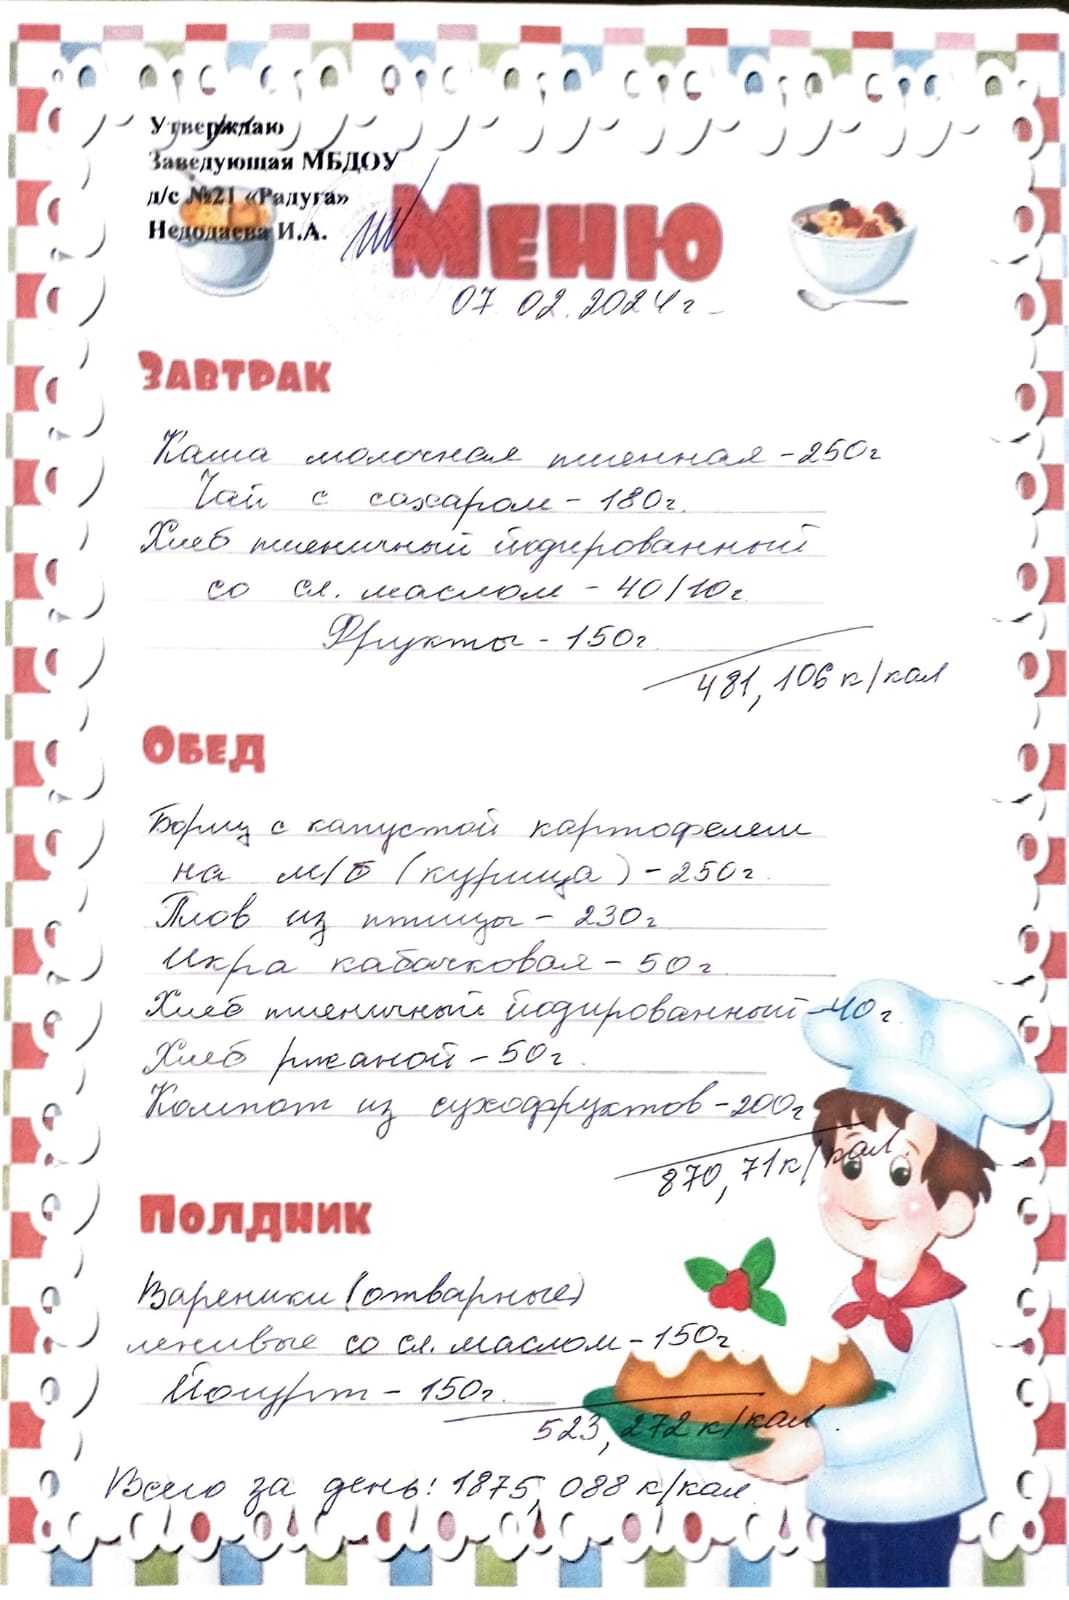 Утверждаю
Заведующая МБДОУ
д/с №21 «Радуга»
Недодаева И.А.
Меню
07.02.2024г.
Завтрак
Каша молочная пшенная - 250г
Чай с сахаром - 180г.
Хлеб пшеничный йодированный
со сл. маслом - 40/10г.
Фрукты - 150г.
481,106 к/кал
Обед
Борщ с капустой картофелем
на м/б (курица) - 250г.
Плов из птицы - 230г
Икра кабачковая - 50г.
Хлеб пшеничный йодированный - 40г.
Хлеб ржаной - 50г.
Компот из сухофруктов - 200г
870,71 к/кал.
Полдник
Вареники (отварные)
ленивые со сл. маслом - 150г.
Йогурт - 150г.
523,272 к/кал.
Всего за день: 1875,088 к/кал.